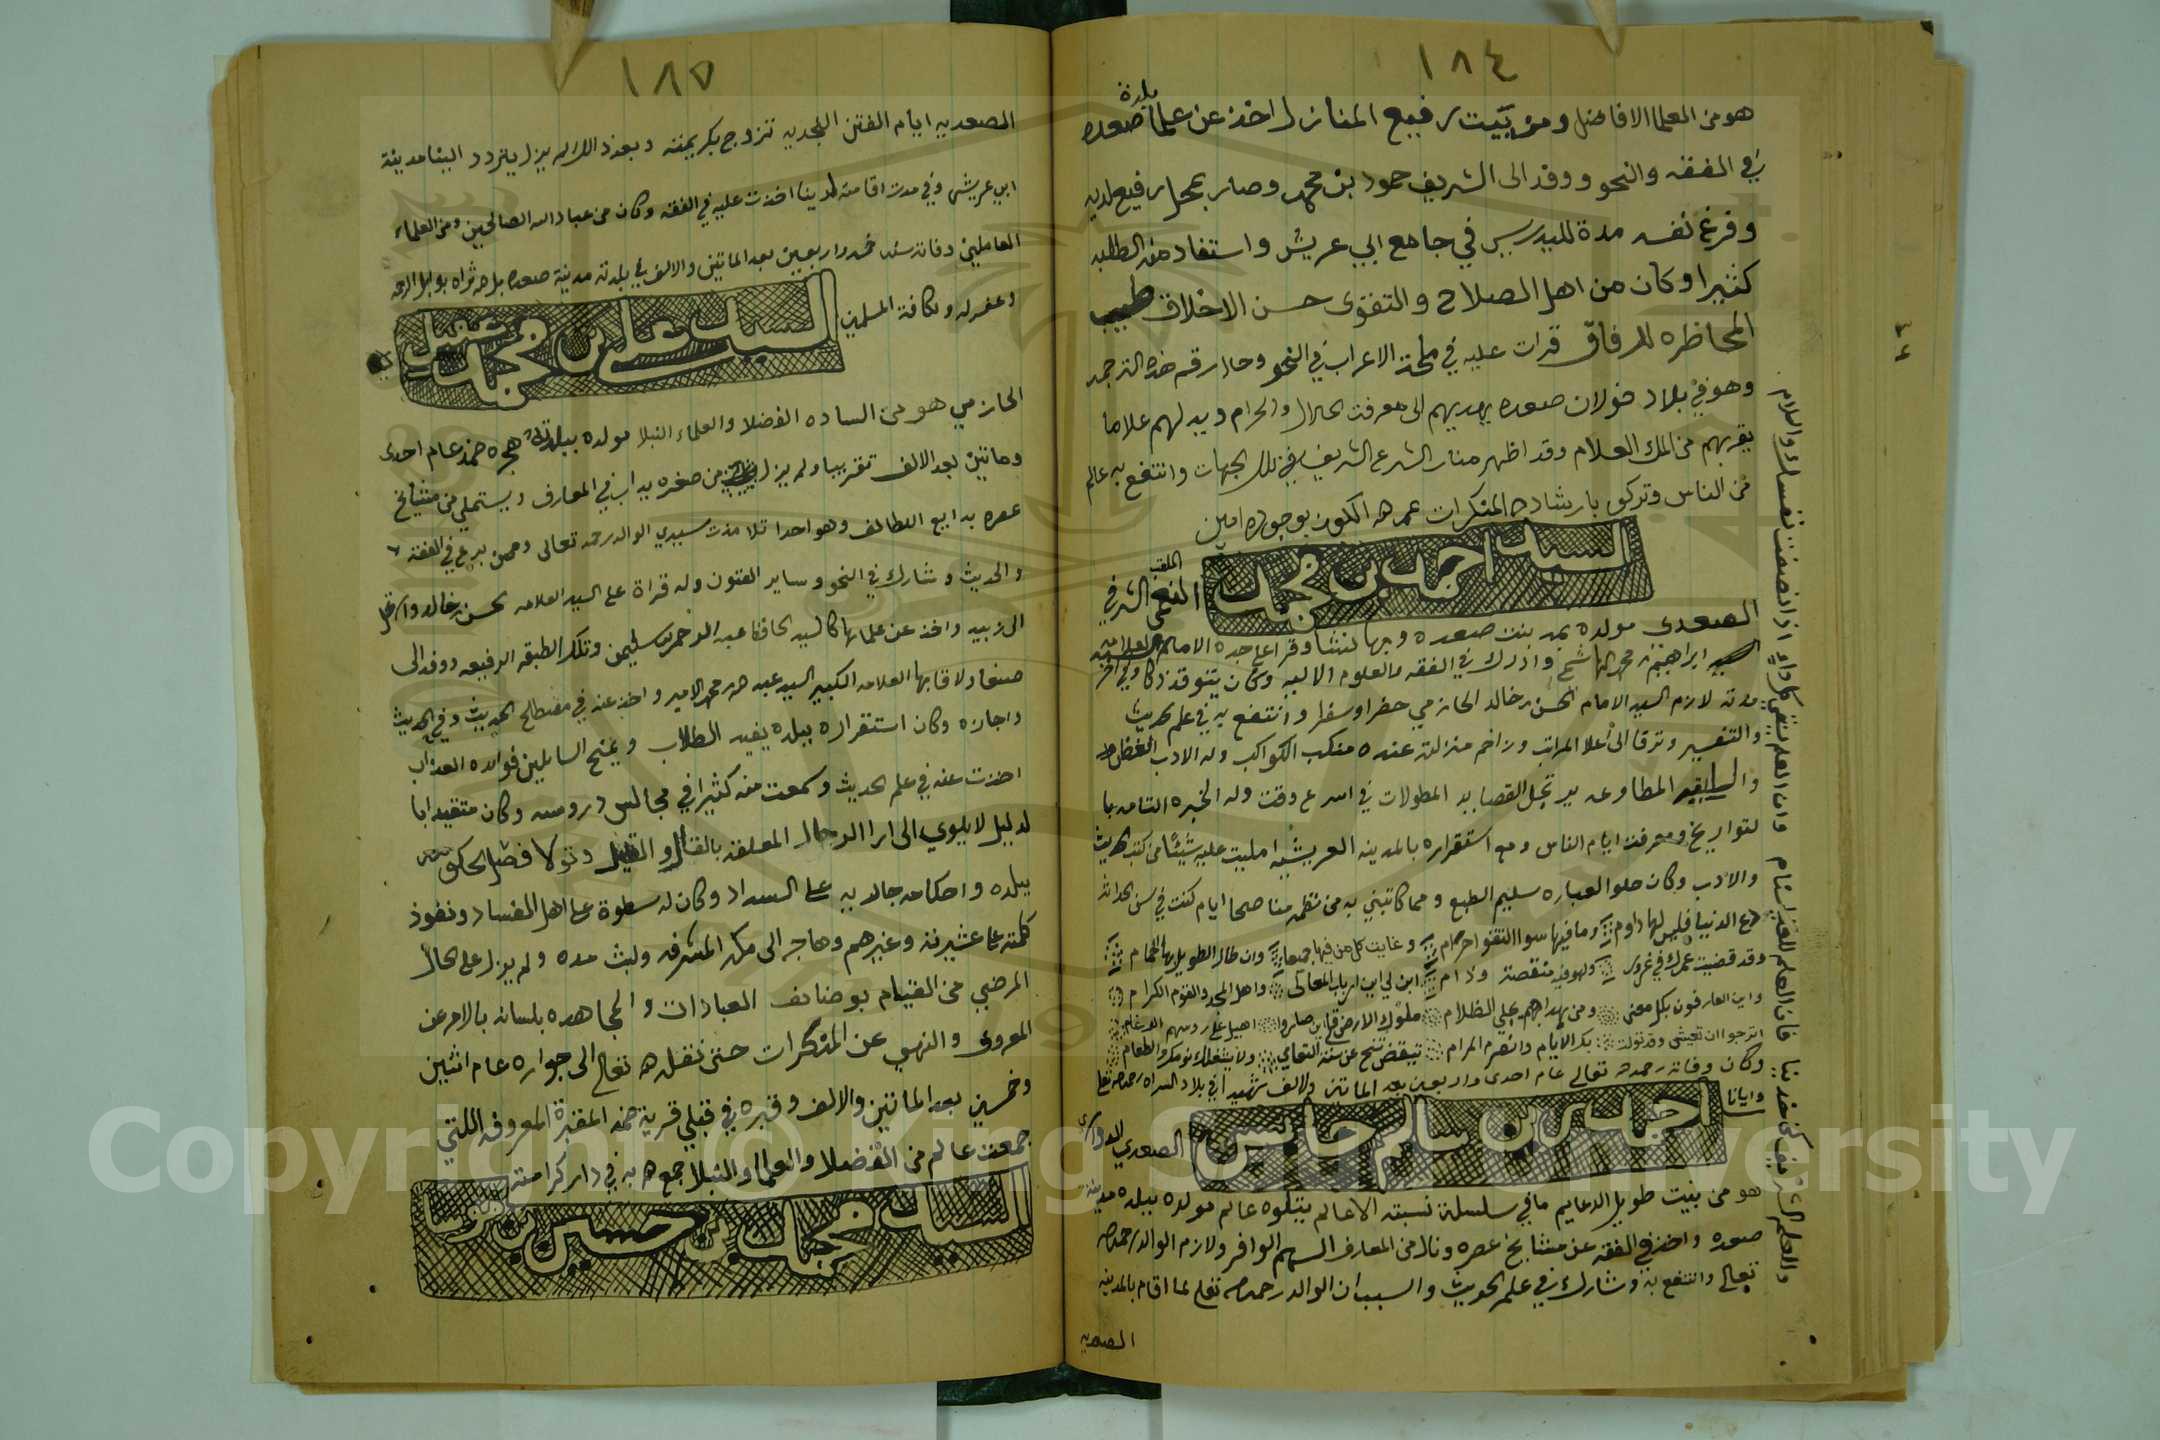 ١٨٤
هو من العلما الافاضل ومن بيت رفيع المنازل اخذ عن علما بلدة صعده
في الفقه والنحو ووفد الى الشريف حمود بن محمد وصار بمحل رفيع لديه
وفرغ نفسه مدة للتدريس في جامع ابي عريش واستفاد منه الطلبه
كثيرا وكان من اهل الصلاح والتقوى حسن الاخلاق طيب
المحاظره للرفاق قرات عليه في ملحة الاعراب في النحو وحال رقم هذه الترجمه
وهو في بلاد خولان صعده يهديهم الى معرفت الحلال والحرام ويبد لهم علاما
يقربهم من الملك العلام وقد اظهر منار الشرع الشريف في تلك الجهات وانتفع به عالم
من الناس وتركو بارشاده المنكرات عمر هـ الكون بوجوده امين
السيد احمد بن محمد
الملقب
الشرفي
الصعدي مولده بمدينت صعده وبها نشا وقرا على جده الامام العلامه
ابراهيم بن محمد الهاشمي وادرك في الفقه والعلوم الاليه وكان يتوقد ذكا وفي اخر
مدته لازم السيد الامام الحسن بن خالد الحازمي حضرا وسفرا وانتفع به في علم الحديث
والتفسير وترقا الى اعلا المراتب وزاخم منزلته عنده منكب الكواكب وله الادب الغض
المطاوعه يرتجل القصايد المطولات في اسرع وقت وله الخبره التامه با
لتواريخ ومعرفت ايام الناس ومع استقراره بالمدينه العريشيه امليت عليه شيئا من كتب الحديث
والادب وكان حلو العباره سليم الطبع ومما كاتبني به من نظمه مناصحا ايام كنت في سن الحداثه
دع الدنيا فليس لها دوام وما فيها سوا التقوا حرام وغايت كل من فيها جميعا وان طال الطويل بها الحمام
وقد قضيت عمرك في غرور ولهو فيه منقصة وذام ابن لي اين ارباب المعالي واهل المجد والقوم الكرام
واين العارفون بكل معنى ومن بهداهم يجلي الظلام ملوك الارض قل اين صاروا اهيل على روسهم الرغام
اترجوا ان تعيش وقد تولت بك الايام وانصرم المرام تيقض تنح عن سنة التعامي ولا يشغلك نومك والطعام
وكان وفاته رحمه هـ تعالى عام احدى واربعين بعد الماتين والالف شهيدا في بلاد السراه رحمه هـ تعا
وايانا
احمد بن سالم حابس
الصعدي الدواري
هو من بيت طويل الدعايم ما في سلسلة نسبته الا عالم يتلوه عالم مولده ببلده مدينة
صعده واخذ في الفقه عن مشايخ عصره ونال من المعارف السهم الوافر ولازم الوالد رحمه هـ
تعالى وانتفع به وشارك في علم الحديث والسبب ان الوالد رحمه هـ تعلى لما اقام بالمدينه
الصعديه
١٨٥
الصعديه ايام الفتن النجديه تزوج بكريمته وبعد ذالك لم يزل يتردد الينا مدينة
ابي عريش وفي مدت اقامته لدينا اخذت عليه في الفقه وكان من عباد الله الصالحين ومن العلماء
العاملين وفاته سنه خمس واربعين بعد الماتين والالف في بلدته مدينة صعده بل هـ ثراه بوابل الرحمه
وغفر له ولكافة المسلمين
السيد علي بن محمد عقيل
الحازمي هو من الساده الفضلا والعلماء النبلا مولده ببلدته هجره ضمد عام احدى
وماتين بعد الالف تقريبا ولم يزل من صغره يداب في المعارف ويستملي من مشايخ
عصره بدايع اللطائف وهو احدا تلامذت سيدي الوالد رحمه تعالى وممن برع في الفقه
والحديث وشارك في النحو وساير الفنون وله قراة على السيد العلامه الحسن بن خالد وارتحل
الى زبيد واخذ عن علمائها كالسيد الحافظ عبد الرحمن بن سليمن وتلك الطبقه الرفيعه ووفد الى
صنعا ولاقا بها العلامه الكبير السيد عبد هـ بن محمد الامير واخذ عنه في مصطلح الحديث وفي الحديث
واجازه وكان استقراره ببلده يفيد الطلاب ويمنح السايلين فوائده العذاب
اخذت عنه في علم الحديث وسمعت منه كثيرا في مجالس دروسه وكان متقيدا با
لدليل لا يلوي الى ارا الرجال المعلقه بالقال والقيل وتولا فصل الحكومه
ببلده واحكامه جاريه على السداد وكان له سطوة على اهل الفساد ونفوذ
كلمته على عشيرته وغيرهم وهاجر الى مكه المشرفه ولبث مده ولم يزل على الحال
المرضي من القيام بوضائف العبادات والمجاهده بلسانه بالامر عن
المعروف والنهي عن المنكرات حتى نقله هـ تعالى الى جواره عام اثنين
وخمسين بعد الماتين والالف وقبره في قبلي قرية ضمد المقبرة المعروفه اللتي
جمعت عالم من الفضلا والعلما والنبلا جمع هـ به في دار كرامته
السيد محمد بن حسين بن
فان العلم للغد استام وان العلم اذا انصفت نفسك والسلام
Copyright © King Saud University